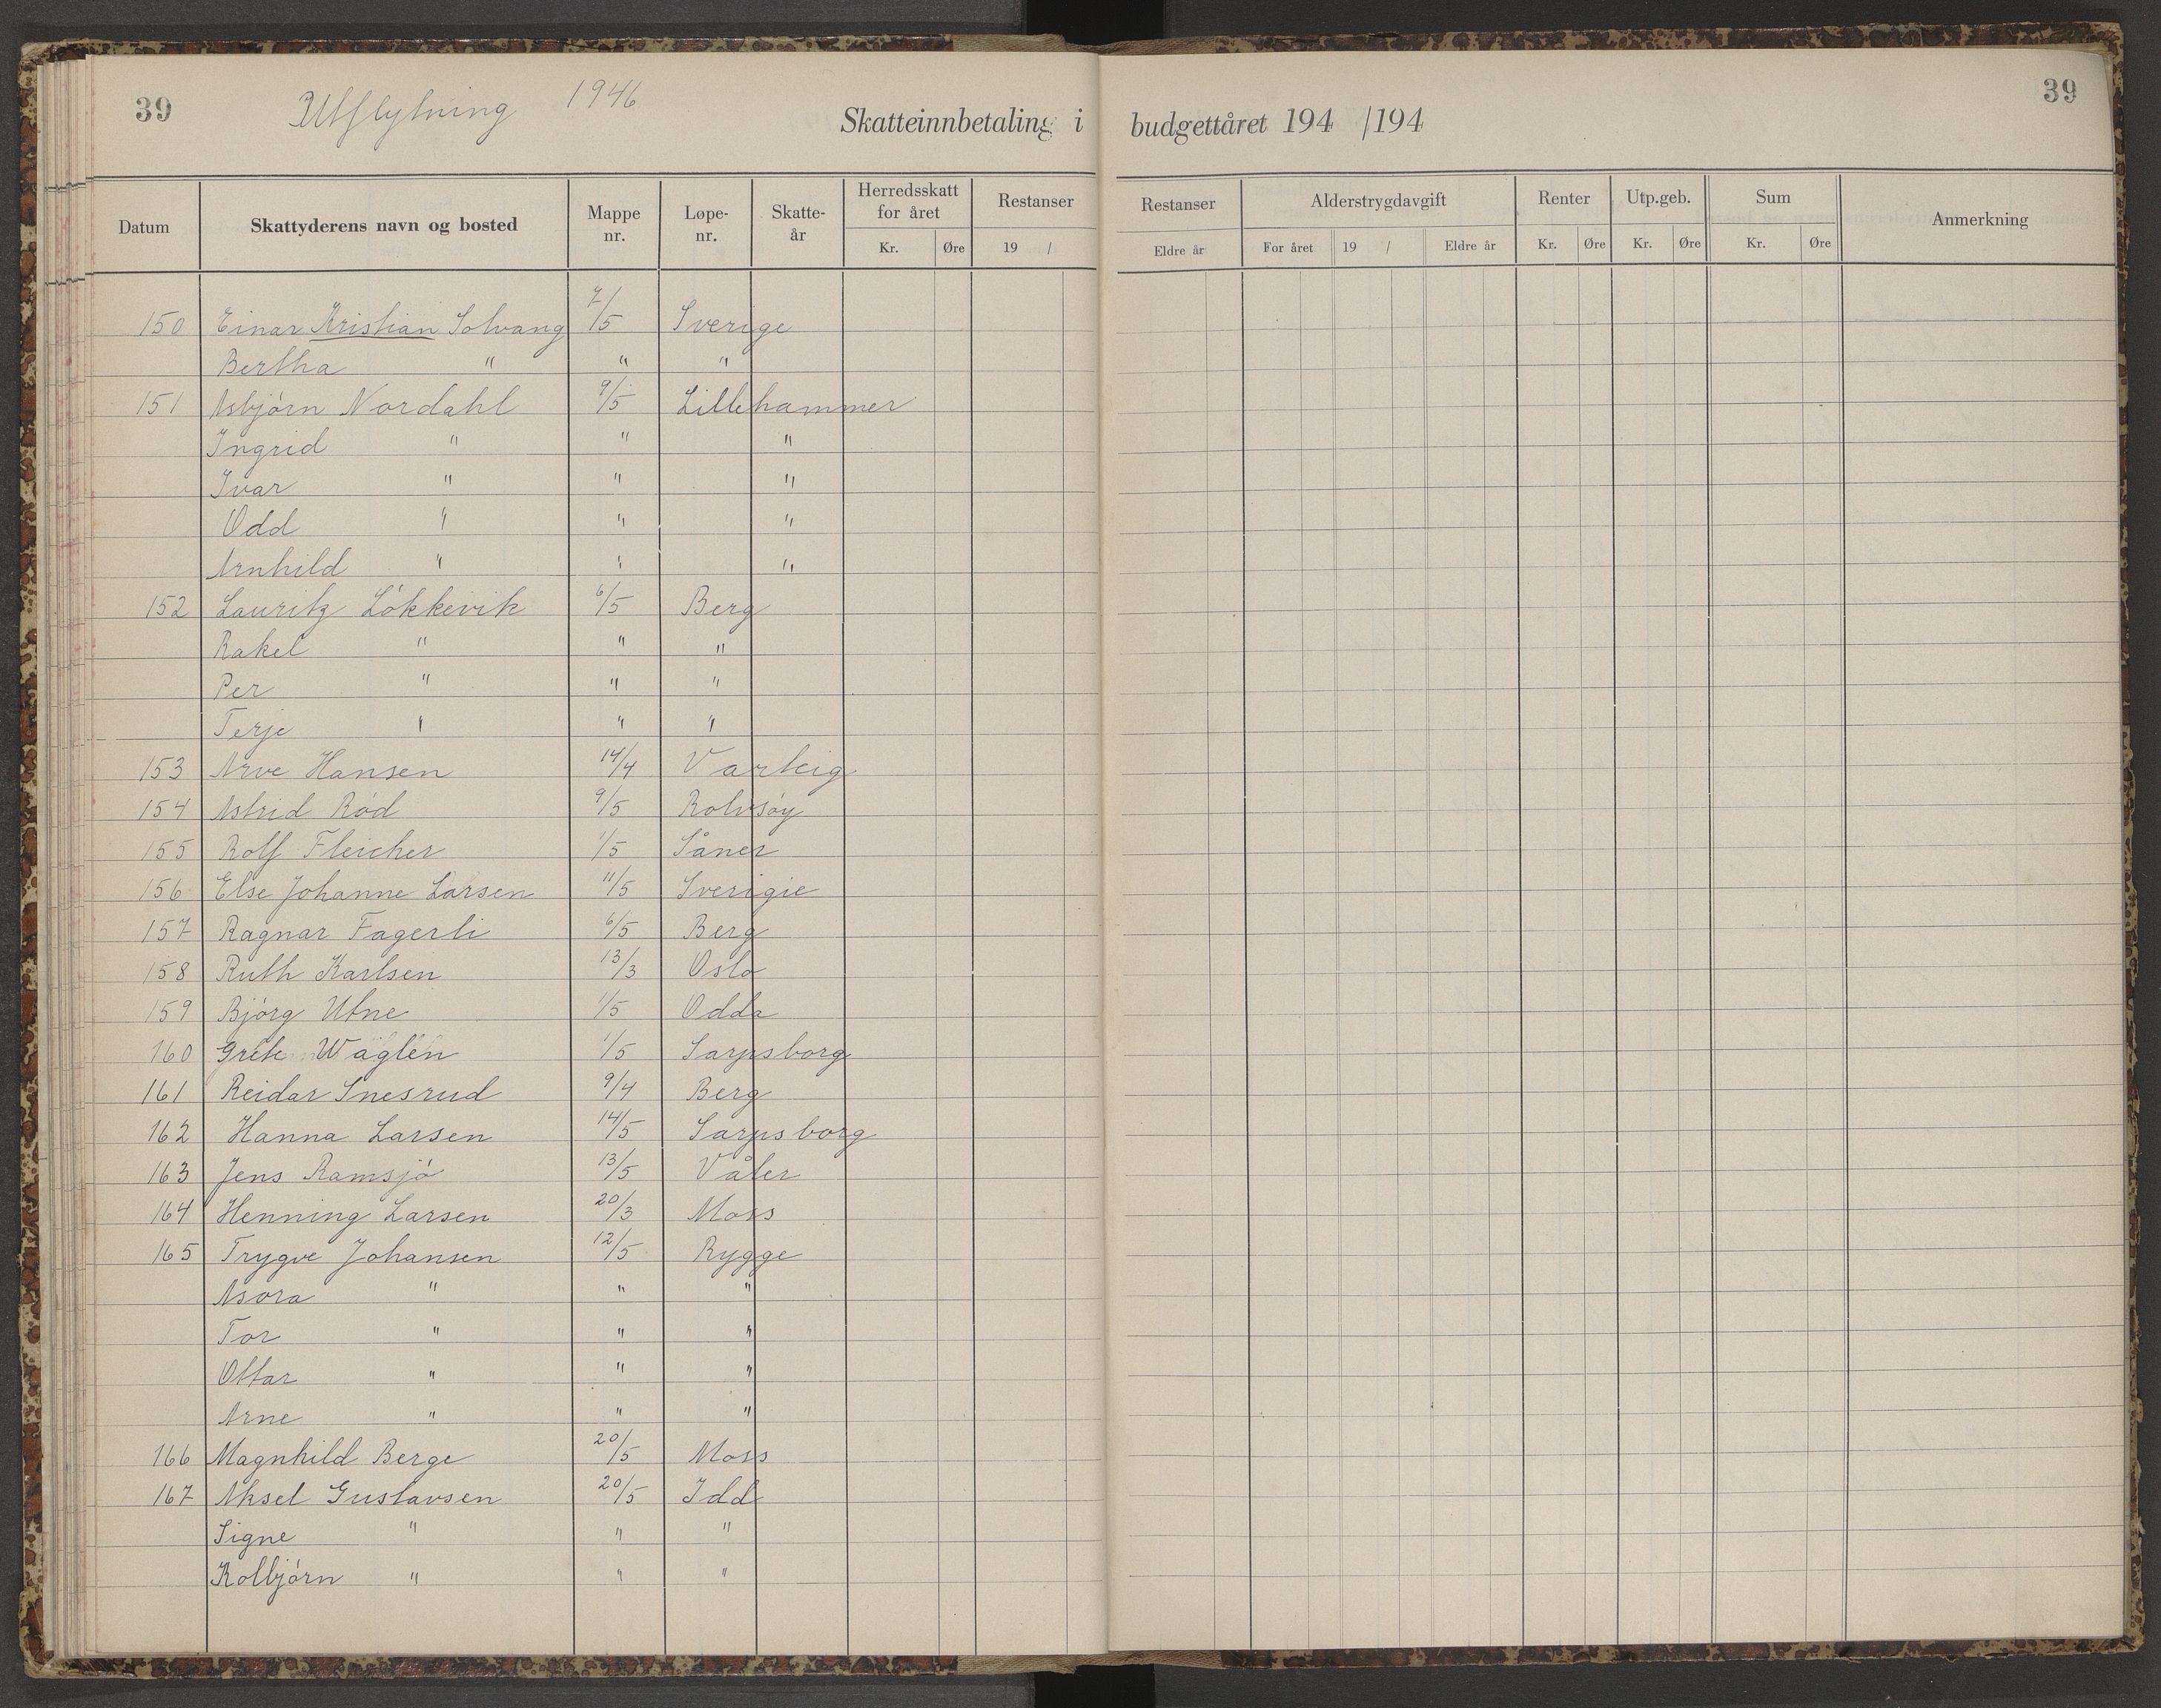 39 Utflytning 1946 39
Skatteinnbetaling i budgettåret 194 /194
Datum Skattyderens navn og bosted Mappe nr. Løpe-nr. Skatte-år Herredsskatt for året Kr. Øre Restanser 19 / Restanser Eldre år Alderstrygdavgift For året 19 / Eldre år Renter Kr. Øre Utp.geb. Kr. Øre Sum Kr. Øre Anmerkning
150 Einar Kristian Solvang 7/5 Sverige
Bertha " " "
151 Asbjørn Nordahl 9/5 Lillehammer
Ingrid " " "
Ivar " " "
Odd " " "
Arnhild " " "
152 Lauritz Løkkevik 6/5 Berg
Rakel " " "
Per " " "
Terje " " "
153 Arve Hansen 14/4 Varteig
154 Astrid Rød 9/5 Rolvsøy
155 Rolf Fleicher 1/5 Såner
156 Else Johanne Larsen 11/5 Sverigie
157 Ragnar Fagerli 6/5 Berg
158 Ruth Karlsen 13/3 Oslo
159 Bjørg Utne 1/5 Odda
160 Grete Waglen 1/5 Sarpsborg
161 Reidar Snesrud 9/4 Berg
162 Hanna Larsen 14/5 Sarpsborg
163 Jens Ramsjø 13/5 Våler
164 Henning Larsen 20/3 Moss
165 Trygve Johansen 12/5 Rygge
Asora " " "
Tor " " "
Ottar " " "
Arne " " "
166 Magnhild Berge 20/5 Moss
167 Aksel Gustavsen 20/5 Idd
Signe " " "
Kolbjørn " " "